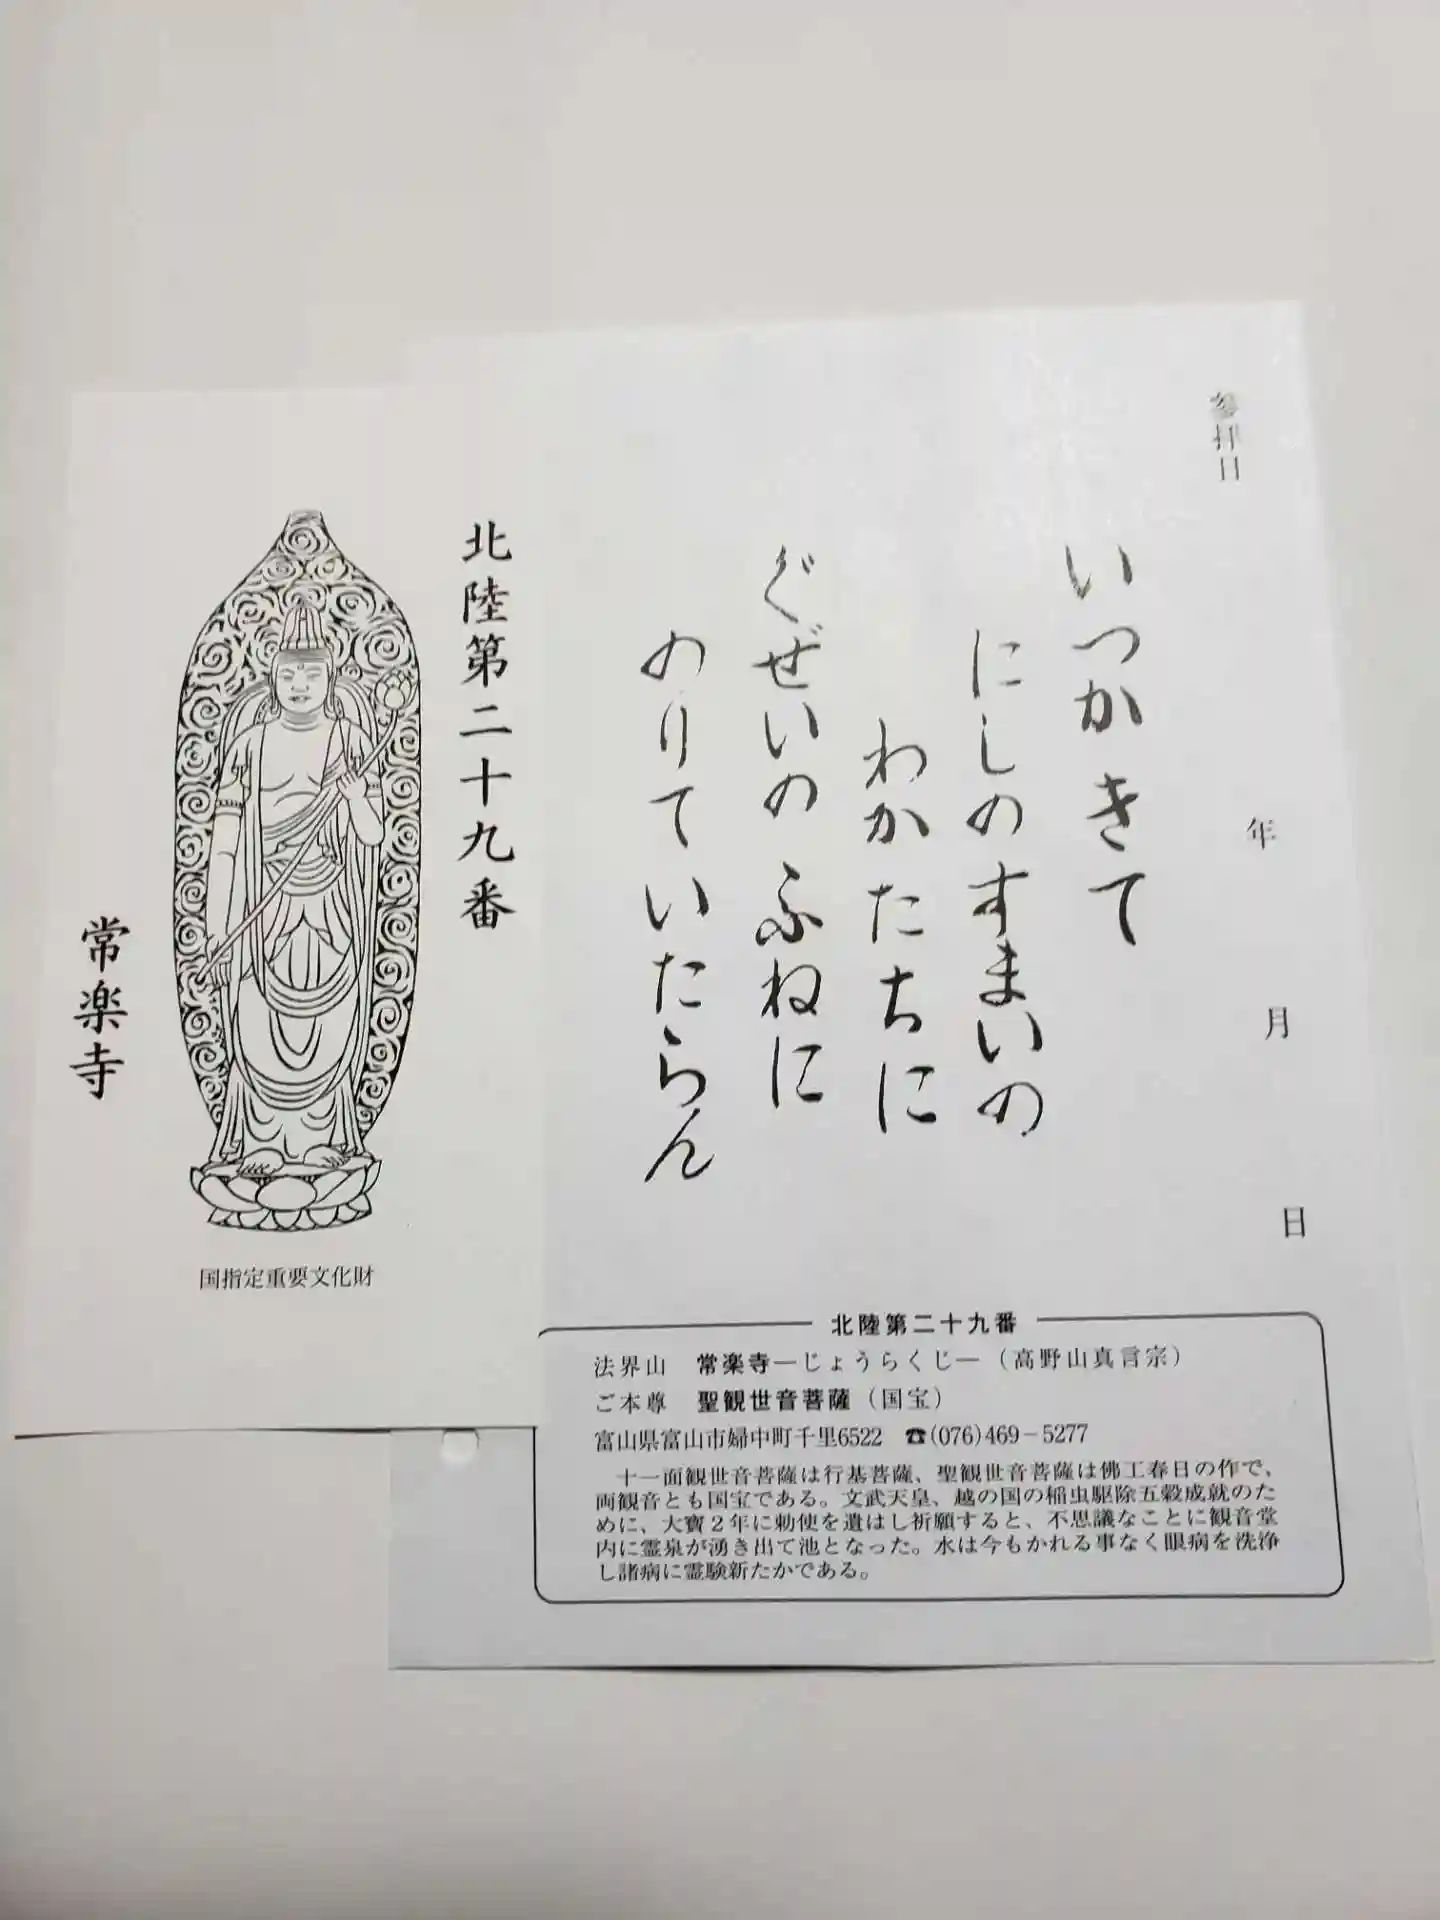 北陸第二十九番
常楽寺
国指定重要文化財
参拝日
年 月 日
いつかきて
にしのすまいの
わかたちに
ぐぜいのふねに
のりていたらん
北陸第二十九番
法界山 常楽寺―じょうらくじ―(高野山真言宗)
ご本尊 聖観世音菩薩(国宝)
富山県富山市婦中町千里6522 ☎(076)469-5277
十一面観世音菩薩は行基菩薩、聖観世音菩薩は佛工春日の作で、
両観音とも国宝である。文武天皇、越の国の稲虫駆除五穀成就のた
めに、大寶2年に勅使を遣はし祈願すると、不思議なことに観音堂
内に霊泉が湧き出て池となった。水は今もかれる事なく眼病を洗浄
し諸病に霊験新たかである。